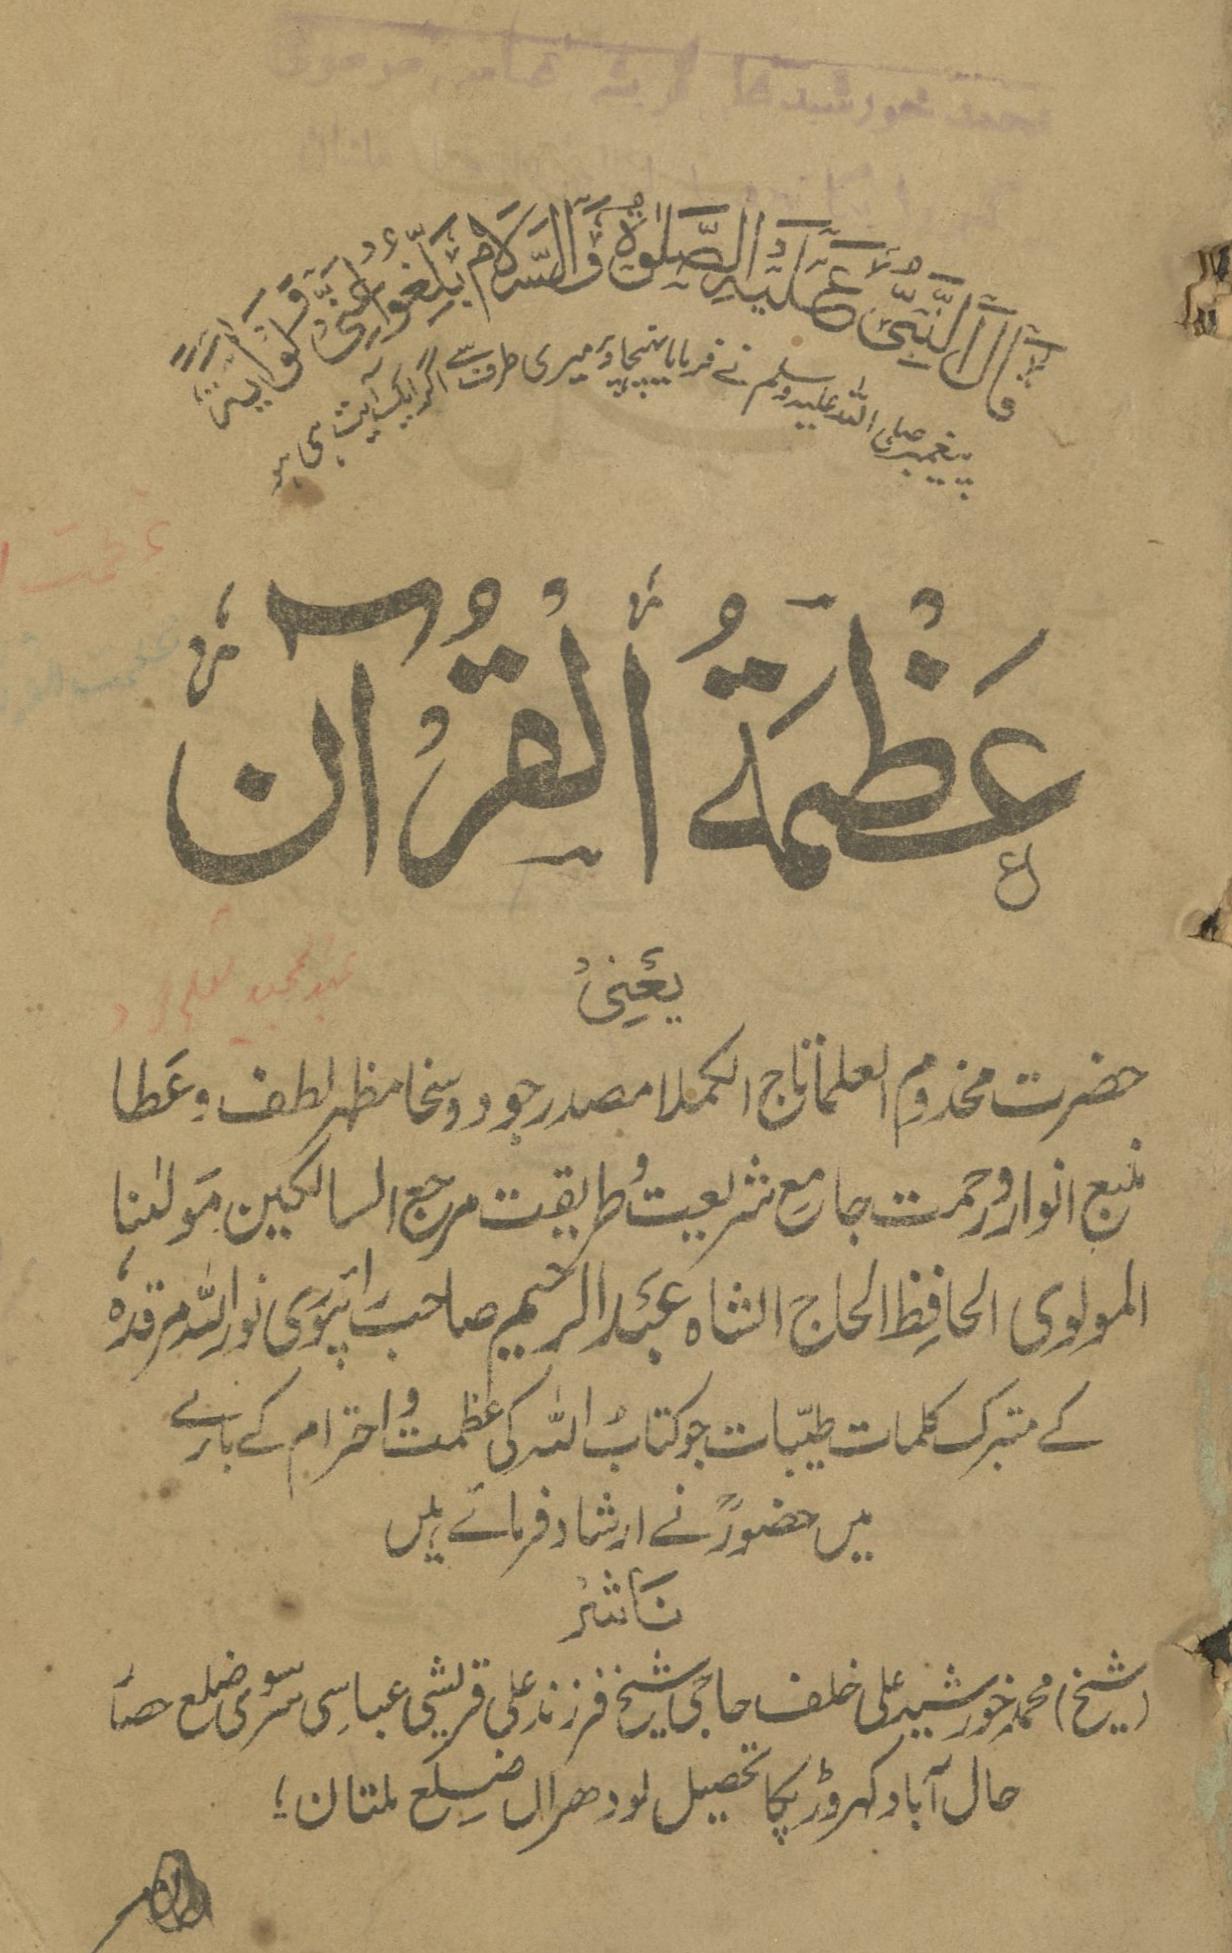 قَالَ النَّبِيُّ عَلَيْهِ الصَّلوٰةُ وَالسَّلَامُ بَلِّغُوْا عَنِّيْ وَلَوْ اٰيَةً
پیغمبر صلی اللہ علیہ وسلم نے فرمایا پہنچاؤ میری طرف سے اگر ایک آیت ہی ہو
عَظْمَةُ الْقُرْآن
یَعْنِیْ
حضرت مخدوم العلما تاج الکملا مصدر جود و سخا مظہر لطف و عَطا
منبع انوار و رحمت جامع شریعت و طریقت مرجع السالکین مَولٰنا
المولوی الحافِظ الحاج الشاہ عَبْد الرحیم صاحب رَائپُوَری نور اللہ مرقدہٗ
کے متبرک کلمات طیّبات جو کتابُ اللہ کی عظمت و احترام کے بارے
میں حضورؒ نے ارشاد فرمائے ہیں
نَاشِرْ
(شیخ) محمد خورشید علی خلف حاجی شیخ فرزند علی قریشی عباسِی سرسوی ضلع حصار
حال آباد کہروڑ پکا تحصیل لودھراں ضِلع ملتان ؛